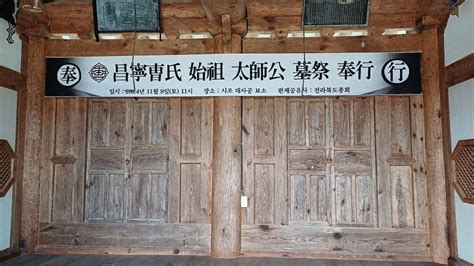 奉 昌寧曺氏 始祖 太師公 墓祭 奉行 行
일시 : 2024년 11월 8일(토) 11시 장소 : 시조 태사공 묘소 판제공유사 : 전라북도종회